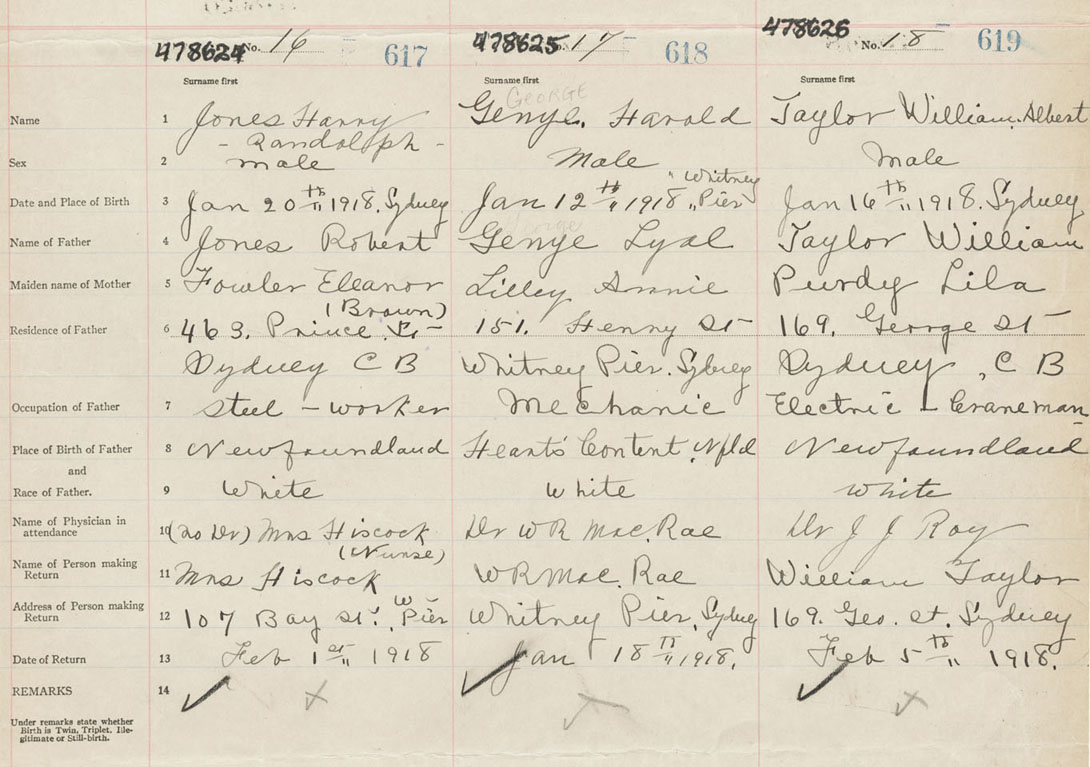 478624 No. 16 617 478625 No. 17 618 478626 No. 18 619
Surname first Surname first Surname first
George
Name 1 Jones Harry Genge. Harold Taylor William. Albert
- Randolph -
Sex 2 male Male Male
" Whitney
Date and Place of Birth 3 Jan 20th " 1918. Sydney Jan 12th " 1918 " Pier Jan 16th " 1918. Sydney
Name of Father 4 Jones Robert Genge Lyal Taylor William
Maiden name of Mother 5 Fowler Eleanor Lilley Annie Purdy Lila
(Brown)
Residence of Father 6 463. Prince St- 151. Henry St 169. George St
Sydney C B Whitney Pier. Sydney Sydney, C B
Occupation of Father 7 Steel - worker Mechanic Electric - Craneman
Place of Birth of Father 8 Newfoundland Heart's Content, Nfld Newfoundland
and
Race of Father. 9 White White White
Name of Physician in attendance 10 (no Dr) Mrs Hiscock Dr W R Mac. Rae Dr J J Roy
(Nurse)
Name of Person making Return 11 Mrs Hiscock W R Mac. Rae William Taylor
Address of Person making Return 12 107 Bay St. W Pier Whitney Pier, Sydney 169. Geo. St. Sydney
Date of Return 13 Feb 1st " 1918 Jan 18th " 1918. Feb 5th " 1918.
REMARKS 14 ✓ x ✓ x ✓ x
Under remarks state whether
Birth is Twin, Triplet, Ille-
gitimate or Still-birth.